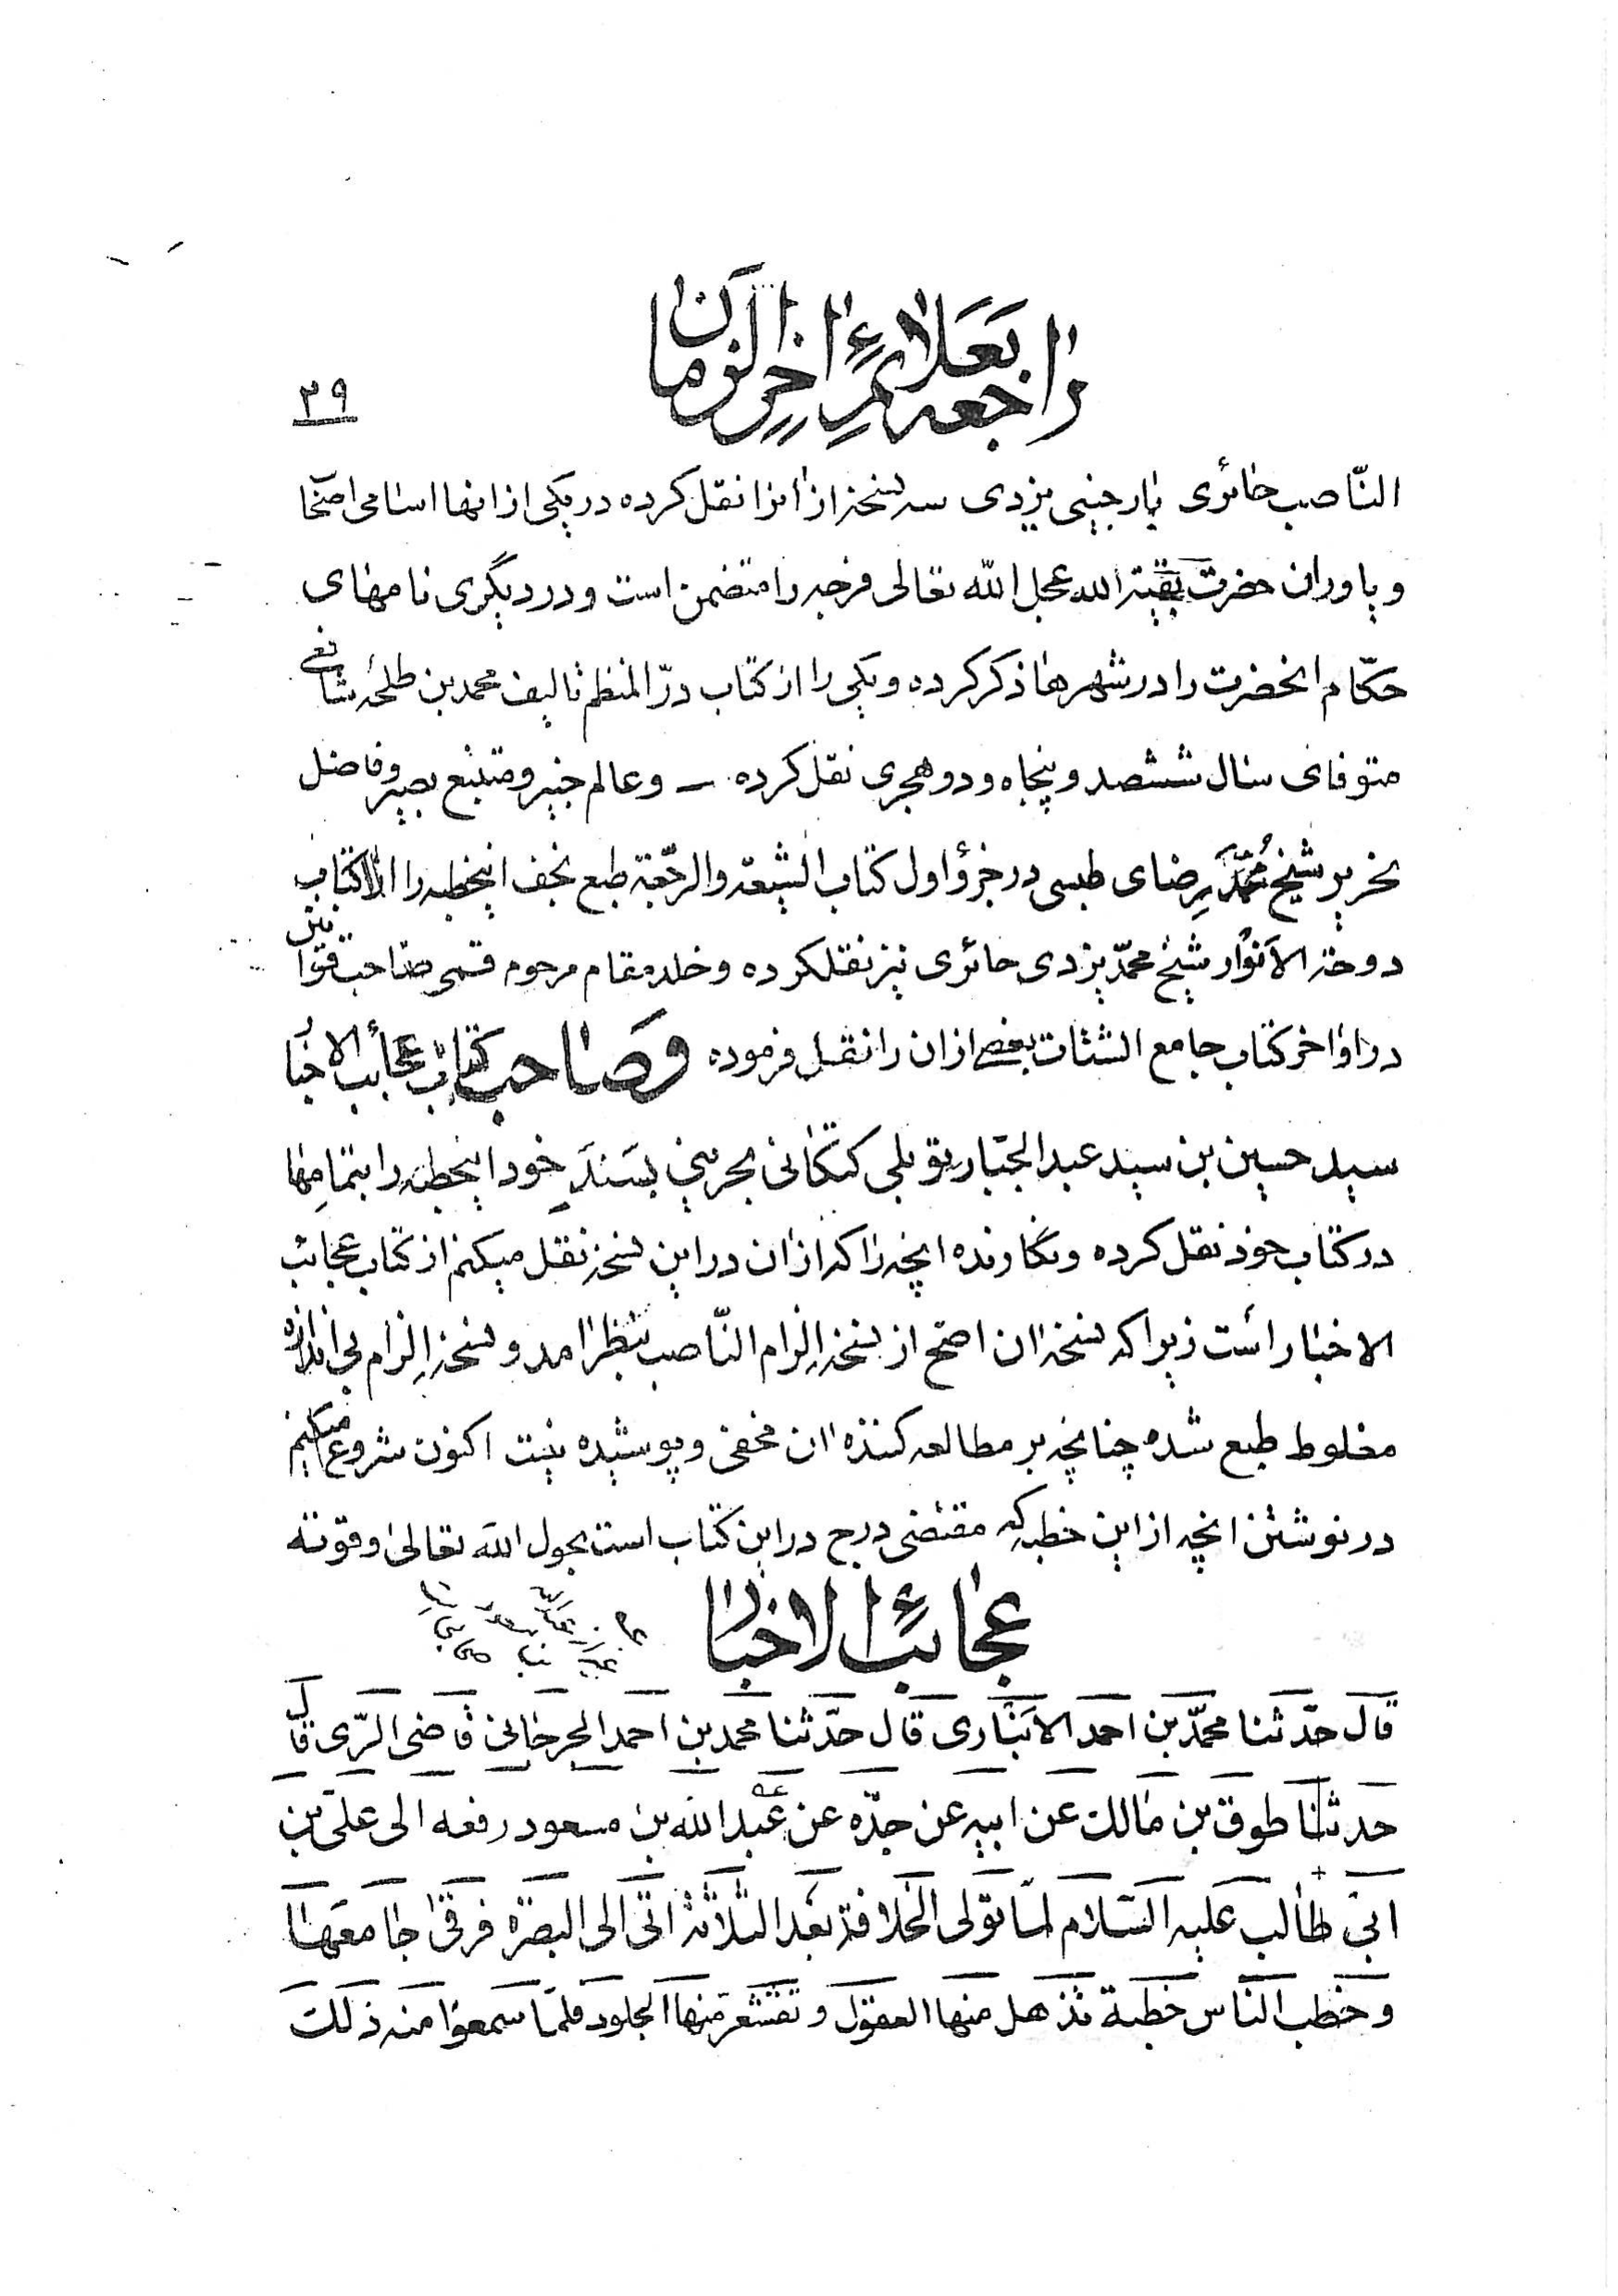 راجعه بعلائم اخر الزمان
۳۹
النّاصب حائری یارجینی یزدی سه نسخه از انرا نقل کرده در یکی از انها اسامی اصحا
و یاوران حضرت بقیة الله عجل الله تعالی فرجه را متضمن است و در دیگری نامهای
حکّام انحضرت را در شهرها ذکر کرده و یکی را از کتاب درّ المنظم تالیف محمد بن طلحهٔ شافعی
متوفای سال ششصد و پنجاه و دو هجری نقل کرده - و عالم خبیر و متتبع بصیر و فاضل
نحریر شیخ محمّد رضای طبسی در جزؤ اول کتاب الشیعة والرجعة طبع نجف اینخطبه را از کتاب
دوحة الأنوار شیخ محمّد یزدی حائری نیز نقلکرده و خلد مقام مرحوم قمی صاحب قوانین
در اواخر کتاب جامع الشتات بعض از ان را نقل فرموده و صاحب کتاب عجائب الاخبا
سید حسین بن سید عبد الجبار توبلی کتکانی بحرینی بسَنَدِ خود اینخطبه را بتمامِها
در کتاب خود نقل کرده و نگارنده انچه را که از ان در این نسخه نقل میکنم از کتاب عجائب
الاخبار است زیرا که نسخهٔ ان اصح از نسخهٔ الزام النّاصب بنظر امد و نسخهٔ الزام بی اندازه
مغلوط طبع شده چنانچه بر مطالعه کنندهٔ ان مخفی و پوشیده نیست اکنون شروع میکنیم
در نوشتن انچه از این خطبه که مقتضی درج در این کتاب است بحول الله تعالی وقوته
عجائب الاخبار
قال حدّثنا محمّد بن احمد الأنباری قال حدّثنا محمد بن احمد الجرجانی قاضی الرّی قال
حدثنا طوق بن مالك عن ابیه عن جدّه عن عبد الله بن مسعود رفعه الی علی بن
ابی طالب علیه السّلام لمّا تولی الخلافة بعد الثلاثة اتی الی البصرة فرقی جامعها
و خطب النّاس خطبة تذهل منها العقول و تقشعر منها الجلود فلمّا سمعوا منه ذلك